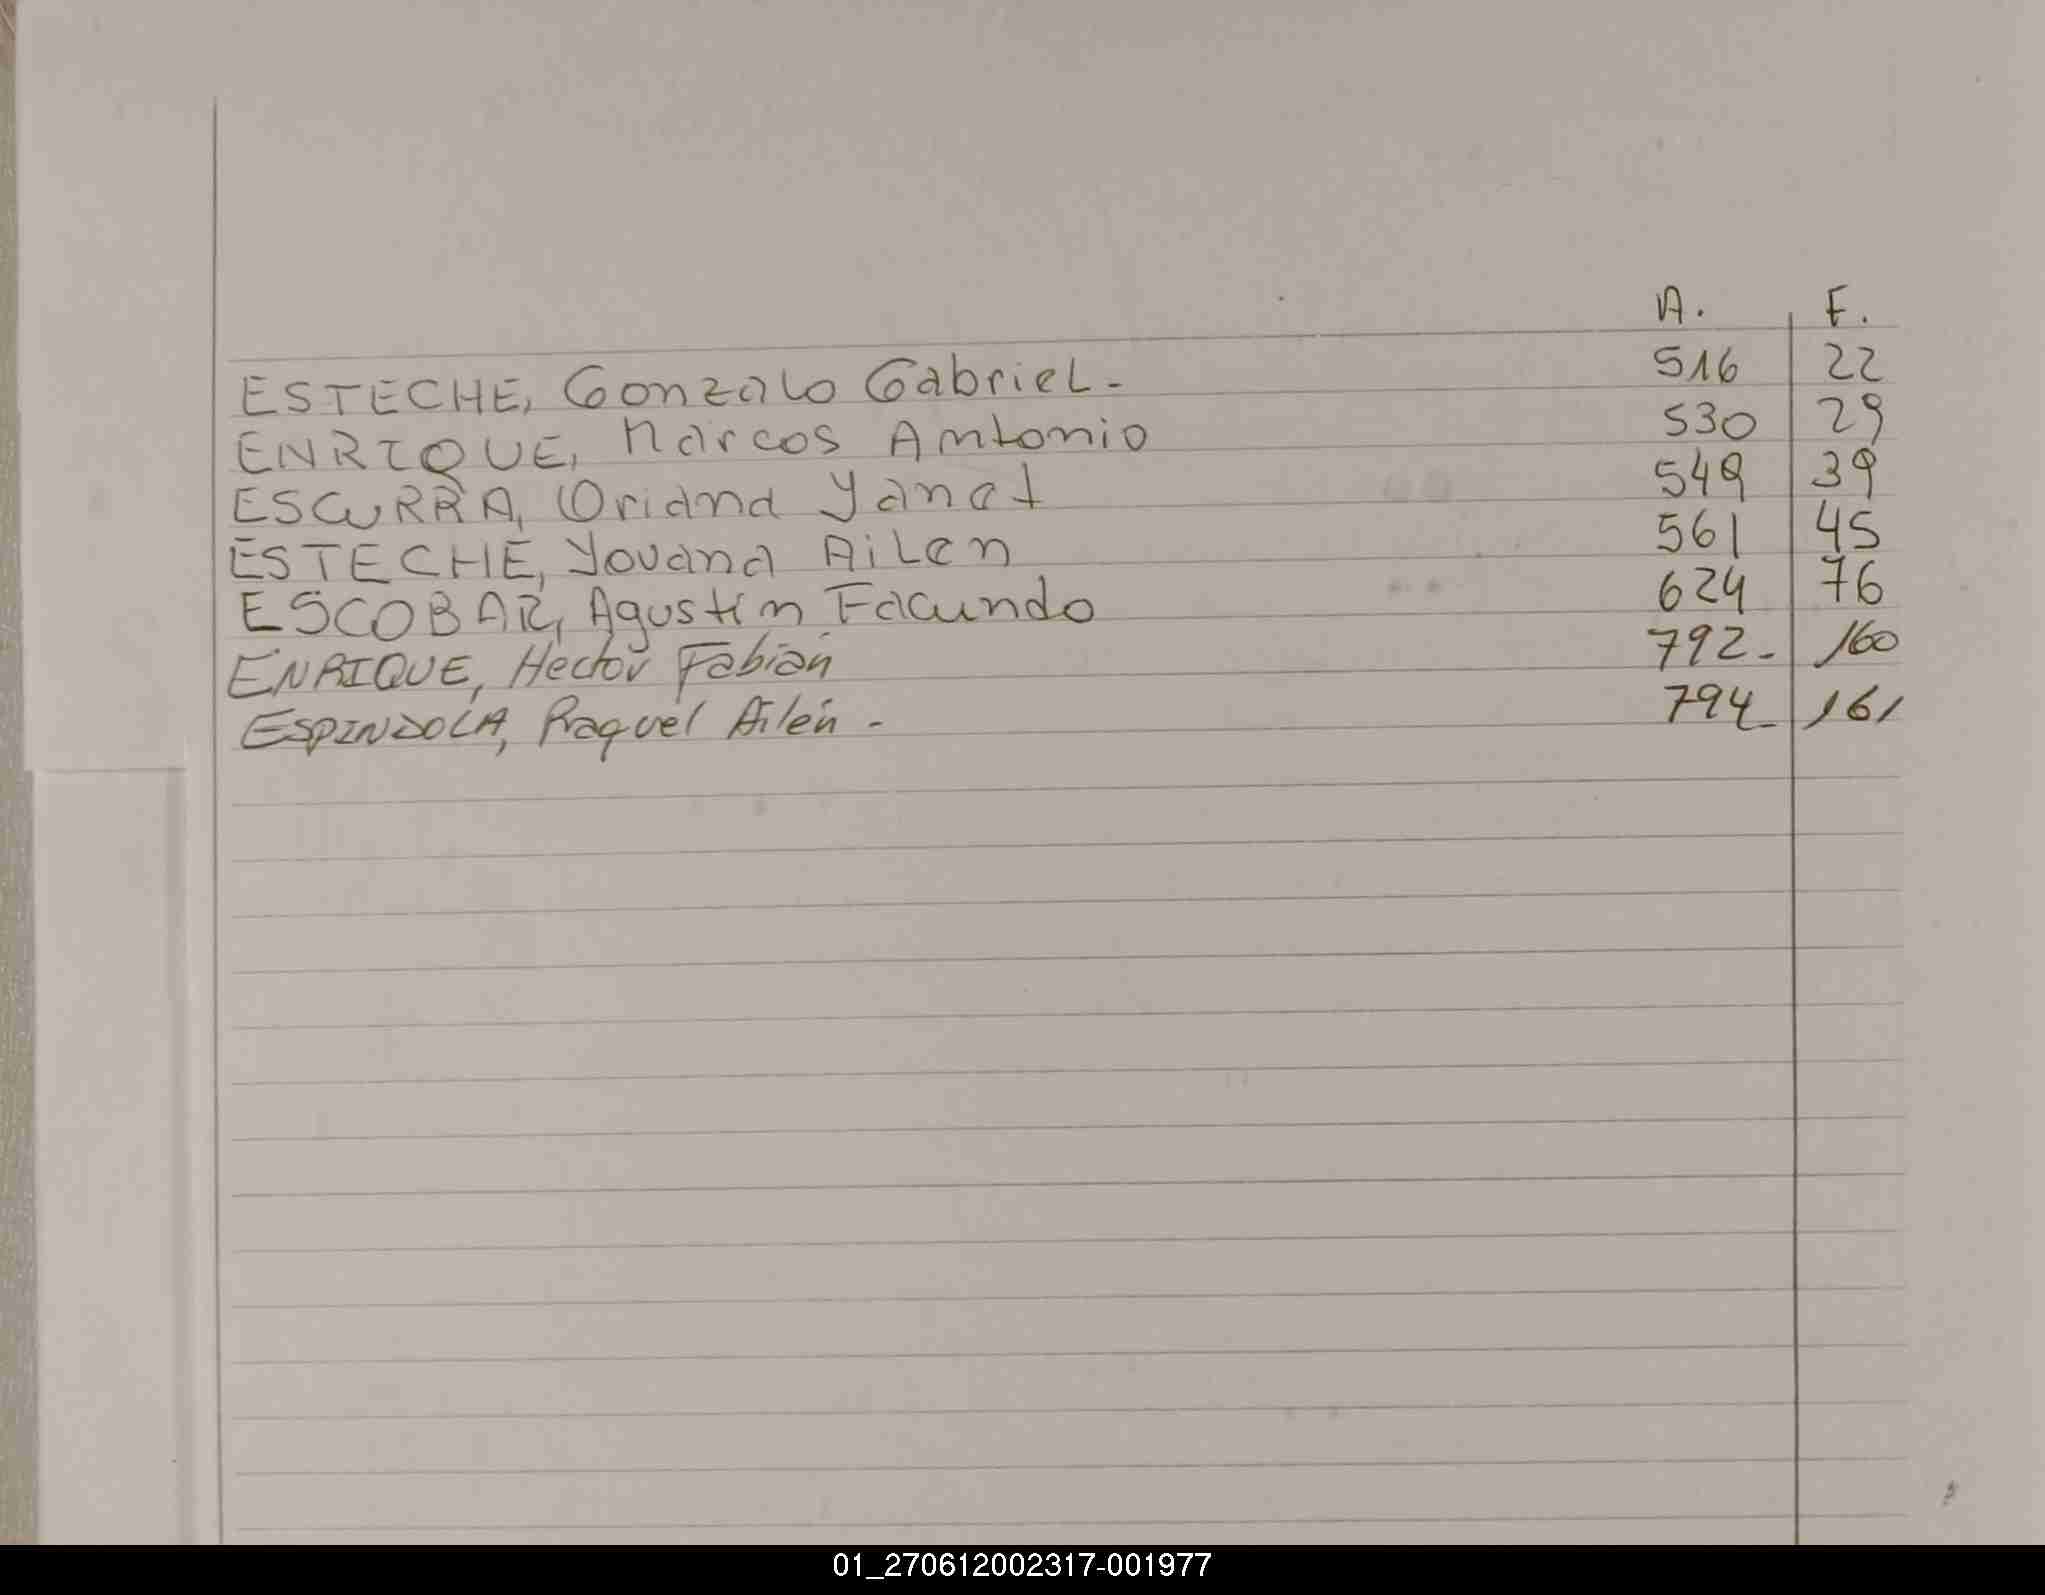 A. F.
ESTECHE, Gonzalo Gabriel- 516 22
ENRIQUE, Marcos Antonio 530 29
ESCURRA, Oriana Yanet 549 39
ESTECHE, Yovana Ailen 561 45
ESCOBAR, Agustin Facundo 624 76
ENRIQUE, Hector Fabián 792- 160
ESPINDOLA, Raquel Ailén - 794- 161
01_270612002317-001977